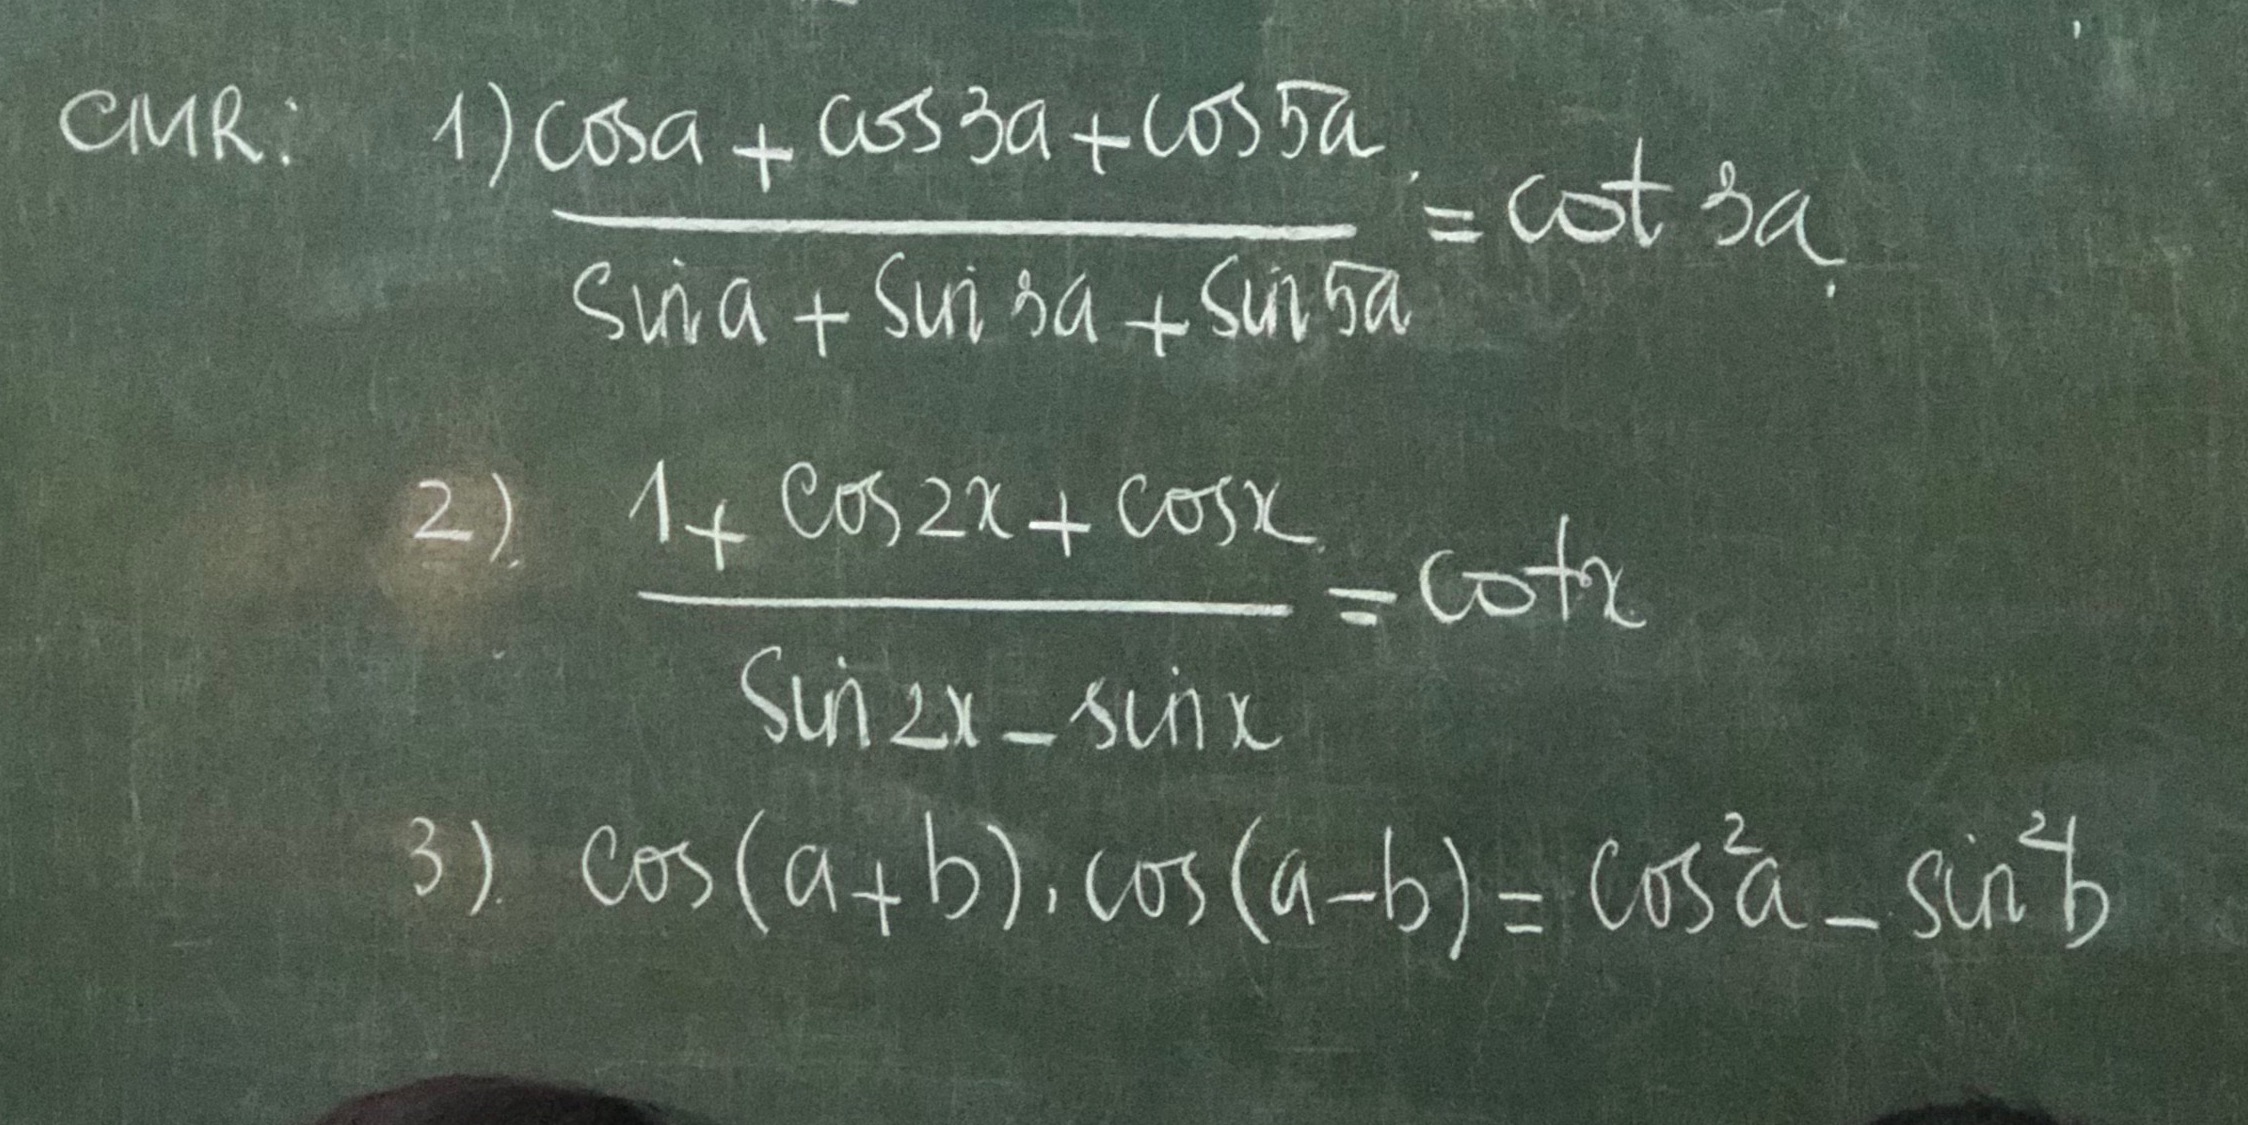 CMR: 1) cosa + cos3a + cos5a / sina + sin3a + sin5a = cot 3a.
2). 1 + cos2x + cosx / sin2x - sinx = cotx
3). cos(a+b).cos(a-b) = cos²a - sin²b